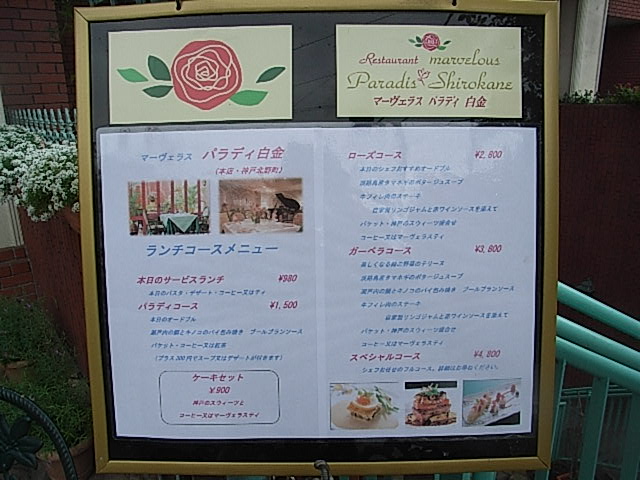 Restaurant marvelous
Paradis Shirokane
マーヴェラス パラディ 白金
マーヴェラス パラディ白金
(本店・神戸北野町)
ランチコースメニュー
本日のサービスランチ ¥980
本日のパスタ・デザート・コーヒー又はティ
パラディコース ¥1,500
本日のオードブル
瀬戸内の鯛とキノコのパイ包み焼き ブールブランソース
バケット・コーヒー又は紅茶
(プラス300円でスープ又はデザートが付きます)
ケーキセット
¥900
神戸のスウィーツと
コーヒー又はマーヴェラスティ
ローズコース ¥2,800
本日のシェフおすすめオードブル
淡路島産タマネギのポタージュスープ
牛フィレ肉のステーキ
自家製リンゴジャムと赤ワインソースを添えて
バケット・神戸のスウィーツ盛合せ
コーヒー又はマーヴェラスティ
ガーベラコース ¥3,800
美しくなる 野菜のテリーヌ
淡路島産タマネギのポタージュスープ
瀬戸内の鯛とキノコのパイ包み焼き ブールブランソース
牛フィレ肉のステーキ
自家製リンゴジャムと赤ワインソースを添えて
バケット・神戸のスウィーツ盛合せ
コーヒー又はマーヴェラスティ
スペシャルコース ¥4,800
シェフお任せのフルコース。詳細はお尋ねください。